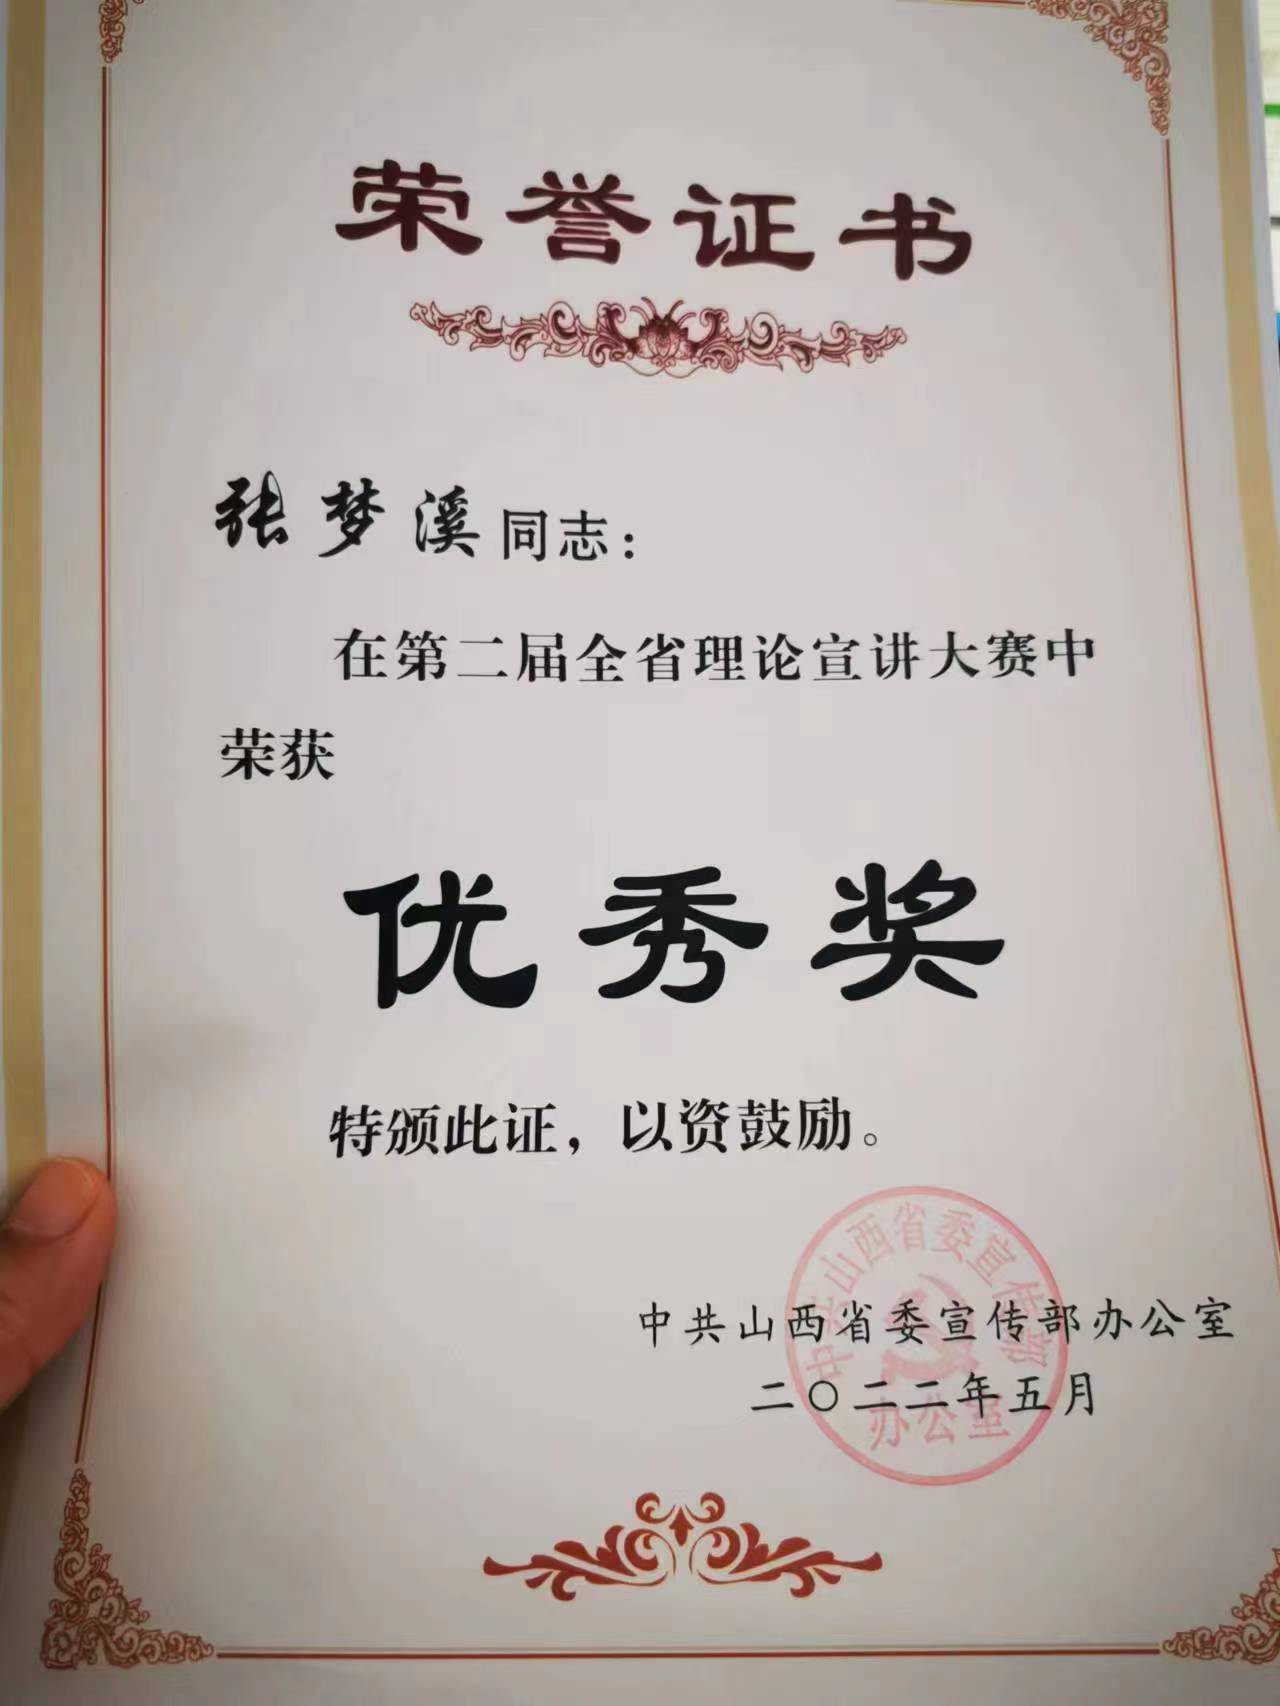 荣誉证书
张梦溪同志：
在第二届全省理论宣讲大赛中
荣获
优秀奖
特颁此证，以资鼓励。
中共山西省委宣传部办公室
二〇二二年五月
中共山西省委宣传部
办公室